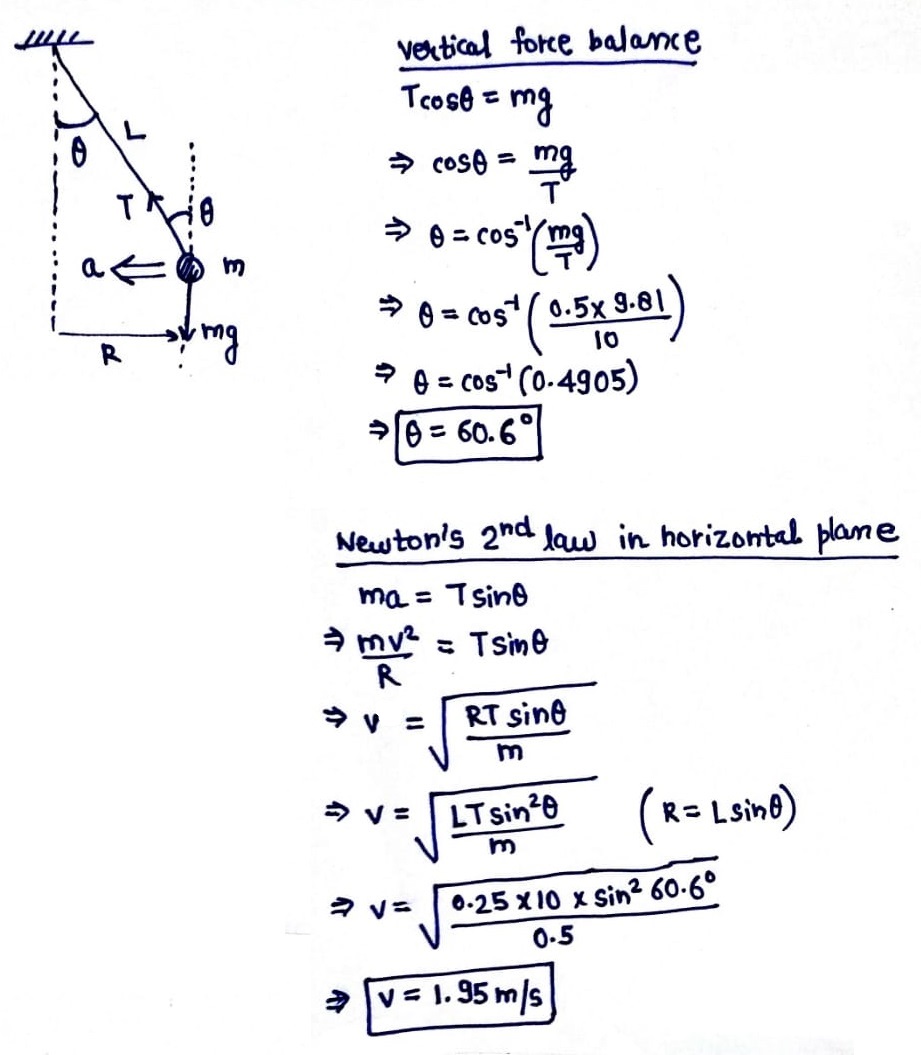 θ
L
T
θ
a
m
mg
R
vertical force balance
Tcosθ = mg
⇒ cosθ = mg/T
⇒ θ = cos⁻¹(mg/T)
⇒ θ = cos⁻¹(0.5x 9.81/10)
⇒ θ = cos⁻¹(0.4905)
⇒ θ = 60.6°
Newton's 2nd law in horizontal plane
ma = Tsinθ
⇒ mv²/R = Tsinθ
⇒ v = √(RT sinθ/m)
⇒ v = √(LT sin²θ/m) (R = Lsinθ)
⇒ v = √(0.25 x 10 x sin² 60.6°/0.5)
⇒ v = 1.95 m/s